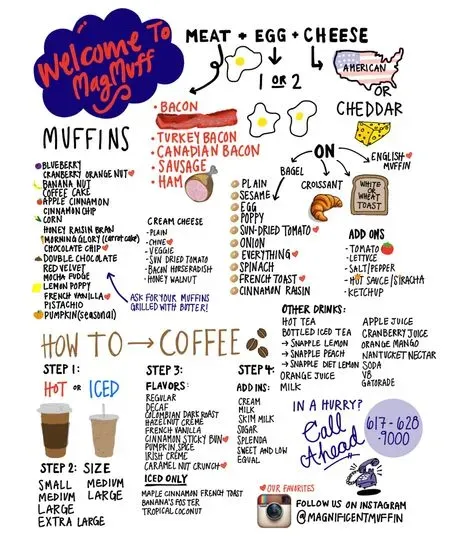 Welcome To
MagMuff
MEAT + EGG + CHEESE
1 OR 2
AMERICAN
OR
CHEDDAR
• BACON
• TURKEY BACON
• CANADIAN BACON
• SAUSAGE
• HAM
ON
BAGEL
CROISSANT
ENGLISH
MUFFIN
WHITE
OR
WHEAT
TOAST
PLAIN
SESAME
EGG
POPPY
SUN-DRIED TOMATO
ONION
EVERYTHING
SPINACH
FRENCH TOAST
CINNAMON RAISIN
ADD ONS
- TOMATO
- LETTUCE
- SALT/PEPPER
- HOT SAUCE/SIRACHA
- KETCHUP
MUFFINS
BLUEBERRY
CRANBERRY ORANGE NUT
BANANA NUT
COFFEE CAKE
APPLE CINNAMON
CINNAMON CHIP
CORN
HONEY RAISIN BRAN
MORNING GLORY (carrot cake)
CHOCOLATE CHIP
DOUBLE CHOCOLATE
RED VELVET
MOCHA FUDGE
LEMON POPPY
FRENCH VANILLA
PISTACHIO
PUMPKIN (seasonal)
CREAM CHEESE
- PLAIN
- CHIVE
- VEGGIE
- SUN DRIED TOMATO
- BACON HORSERADISH
- HONEY WALNUT
ASK FOR YOUR MUFFINS
GRILLED WITH BUTTER!
OTHER DRINKS:
HOT TEA
BOTTLED ICED TEA
→ SNAPPLE LEMON
→ SNAPPLE PEACH
→ SNAPPLE DIET LEMON
ORANGE JUICE
MILK
APPLE JUICE
CRANBERRY JUICE
ORANGE MANGO
NANTUCKET NECTAR
SODA
V8
GATORADE
HOW TO → COFFEE
STEP 1:
HOT OR ICED
STEP 2: SIZE
SMALL
MEDIUM
LARGE
EXTRA LARGE
MEDIUM
LARGE
STEP 3:
FLAVORS:
REGULAR
DECAF
COLOMBIAN DARK ROAST
HAZELNUT CREME
FRENCH VANILLA
CINNAMON STICKY BUN
PUMPKIN SPICE
IRISH CRÈME
CARAMEL NUT CRUNCH
ICED ONLY
MAPLE CINNAMON FRENCH TOAST
BANANA'S FOSTER
TROPICAL COCONUT
STEP 4:
ADD INS:
CREAM
MILK
SKIM MILK
SUGAR
SPLENDA
SWEET AND LOW
EQUAL
IN A HURRY?
Call
Ahead
617-628
-9000
OUR FAVORITES
FOLLOW US ON INSTAGRAM
@MAGNIFICENTMUFFIN